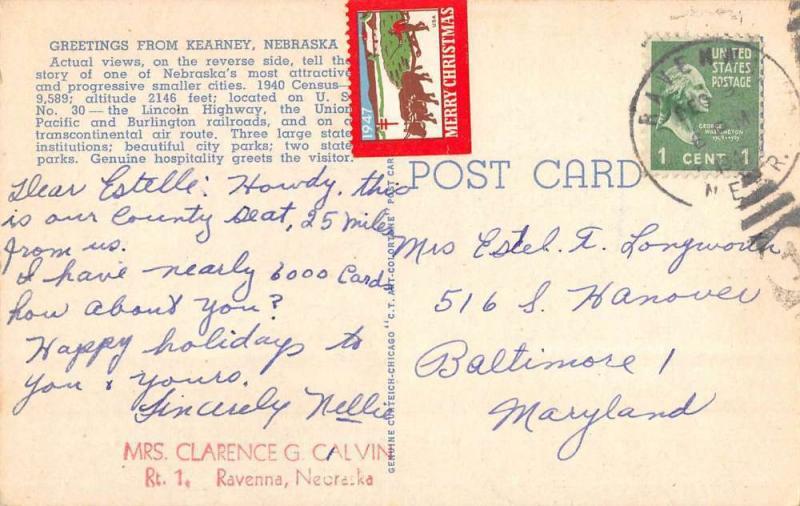 GREETINGS FROM KEARNEY, NEBRASKA
Actual views, on the reverse side, tell the
story of one of Nebraska's most attractive
and progressive smaller cities. 1940 Census—
9,589; altitude 2146 feet; located on U. S.
No. 30—the Lincoln Highway, the Union
Pacific and Burlington railroads, and on a
transcontinental air route. Three large state
institutions; beautiful city parks; two state
parks. Genuine hospitality greets the visitor.
1947
MERRY CHRISTMAS
USA
UNITED
STATES
POSTAGE
GEORGE
WASHINGTON
1789-1797
1 CENT 1
RAVENNA
DEC
NEBR
POST CARD
Dear Estelle: Howdy, this
is our County Seat, 25 miles
from us.
I have nearly 6000 Cards
how about you?
Happy holidays to
you & yours.
Sincerely Nellie
MRS. CLARENCE G. CALVIN
Rt. 1. Ravenna, Nebraska
GENUINE CURTEICH-CHICAGO "C.T. ART-COLORTONE" POST CARD
Mrs Estel. F. Longworth
516 S. Hanover
Baltimore 1
Maryland